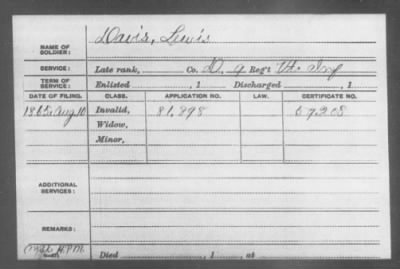 NAME OF SOLDIER: Davis, Lewis
SERVICE: Late rank, Co. D, 9 Reg't Vt. Inf
TERM OF SERVICE: Enlisted , 1 Discharged , 1
DATE OF FILING. CLASS. APPLICATION NO. LAW. CERTIFICATE NO.
1865 Aug 10 Invalid, 81,898 57308
Widow,
Minor,
ADDITIONAL SERVICES:
REMARKS:
Died , 1 , at